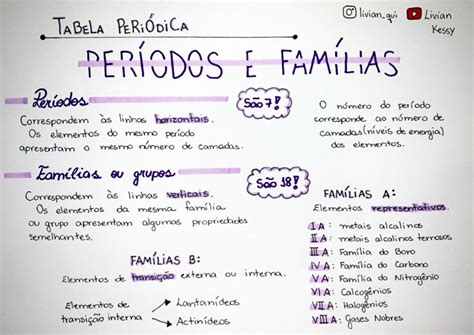 livian_qui
Livian
Kessy
TABELA PERIÓDICA
PERÍODOS E FAMÍLIAS
Períodos
São 7!
Correspondem às linhas horizontais.
Os elementos do mesmo período
apresentam o mesmo número de camadas.
O número do período
corresponde ao número de
camadas (níveis de energia)
dos elementos.
Famílias ou grupos
São 18!
Correspondem às linhas verticais.
Os elementos da mesma família
ou grupo apresentam algumas propriedades
semelhantes.
FAMÍLIAS A:
Elementos representativos.
I A: metais alcalinos
II A: metais alcalinos terrosos
III A: Família do Boro
IV A: Família do Carbono
V A: Família do Nitrogênio
VI A: Calcogênios
VII A: Halogênios
VIII A: Gases Nobres
FAMÍLIAS B:
Elementos de transição externa ou interna.
Elementos de
transição interna
Lantanídeos
Actinídeos